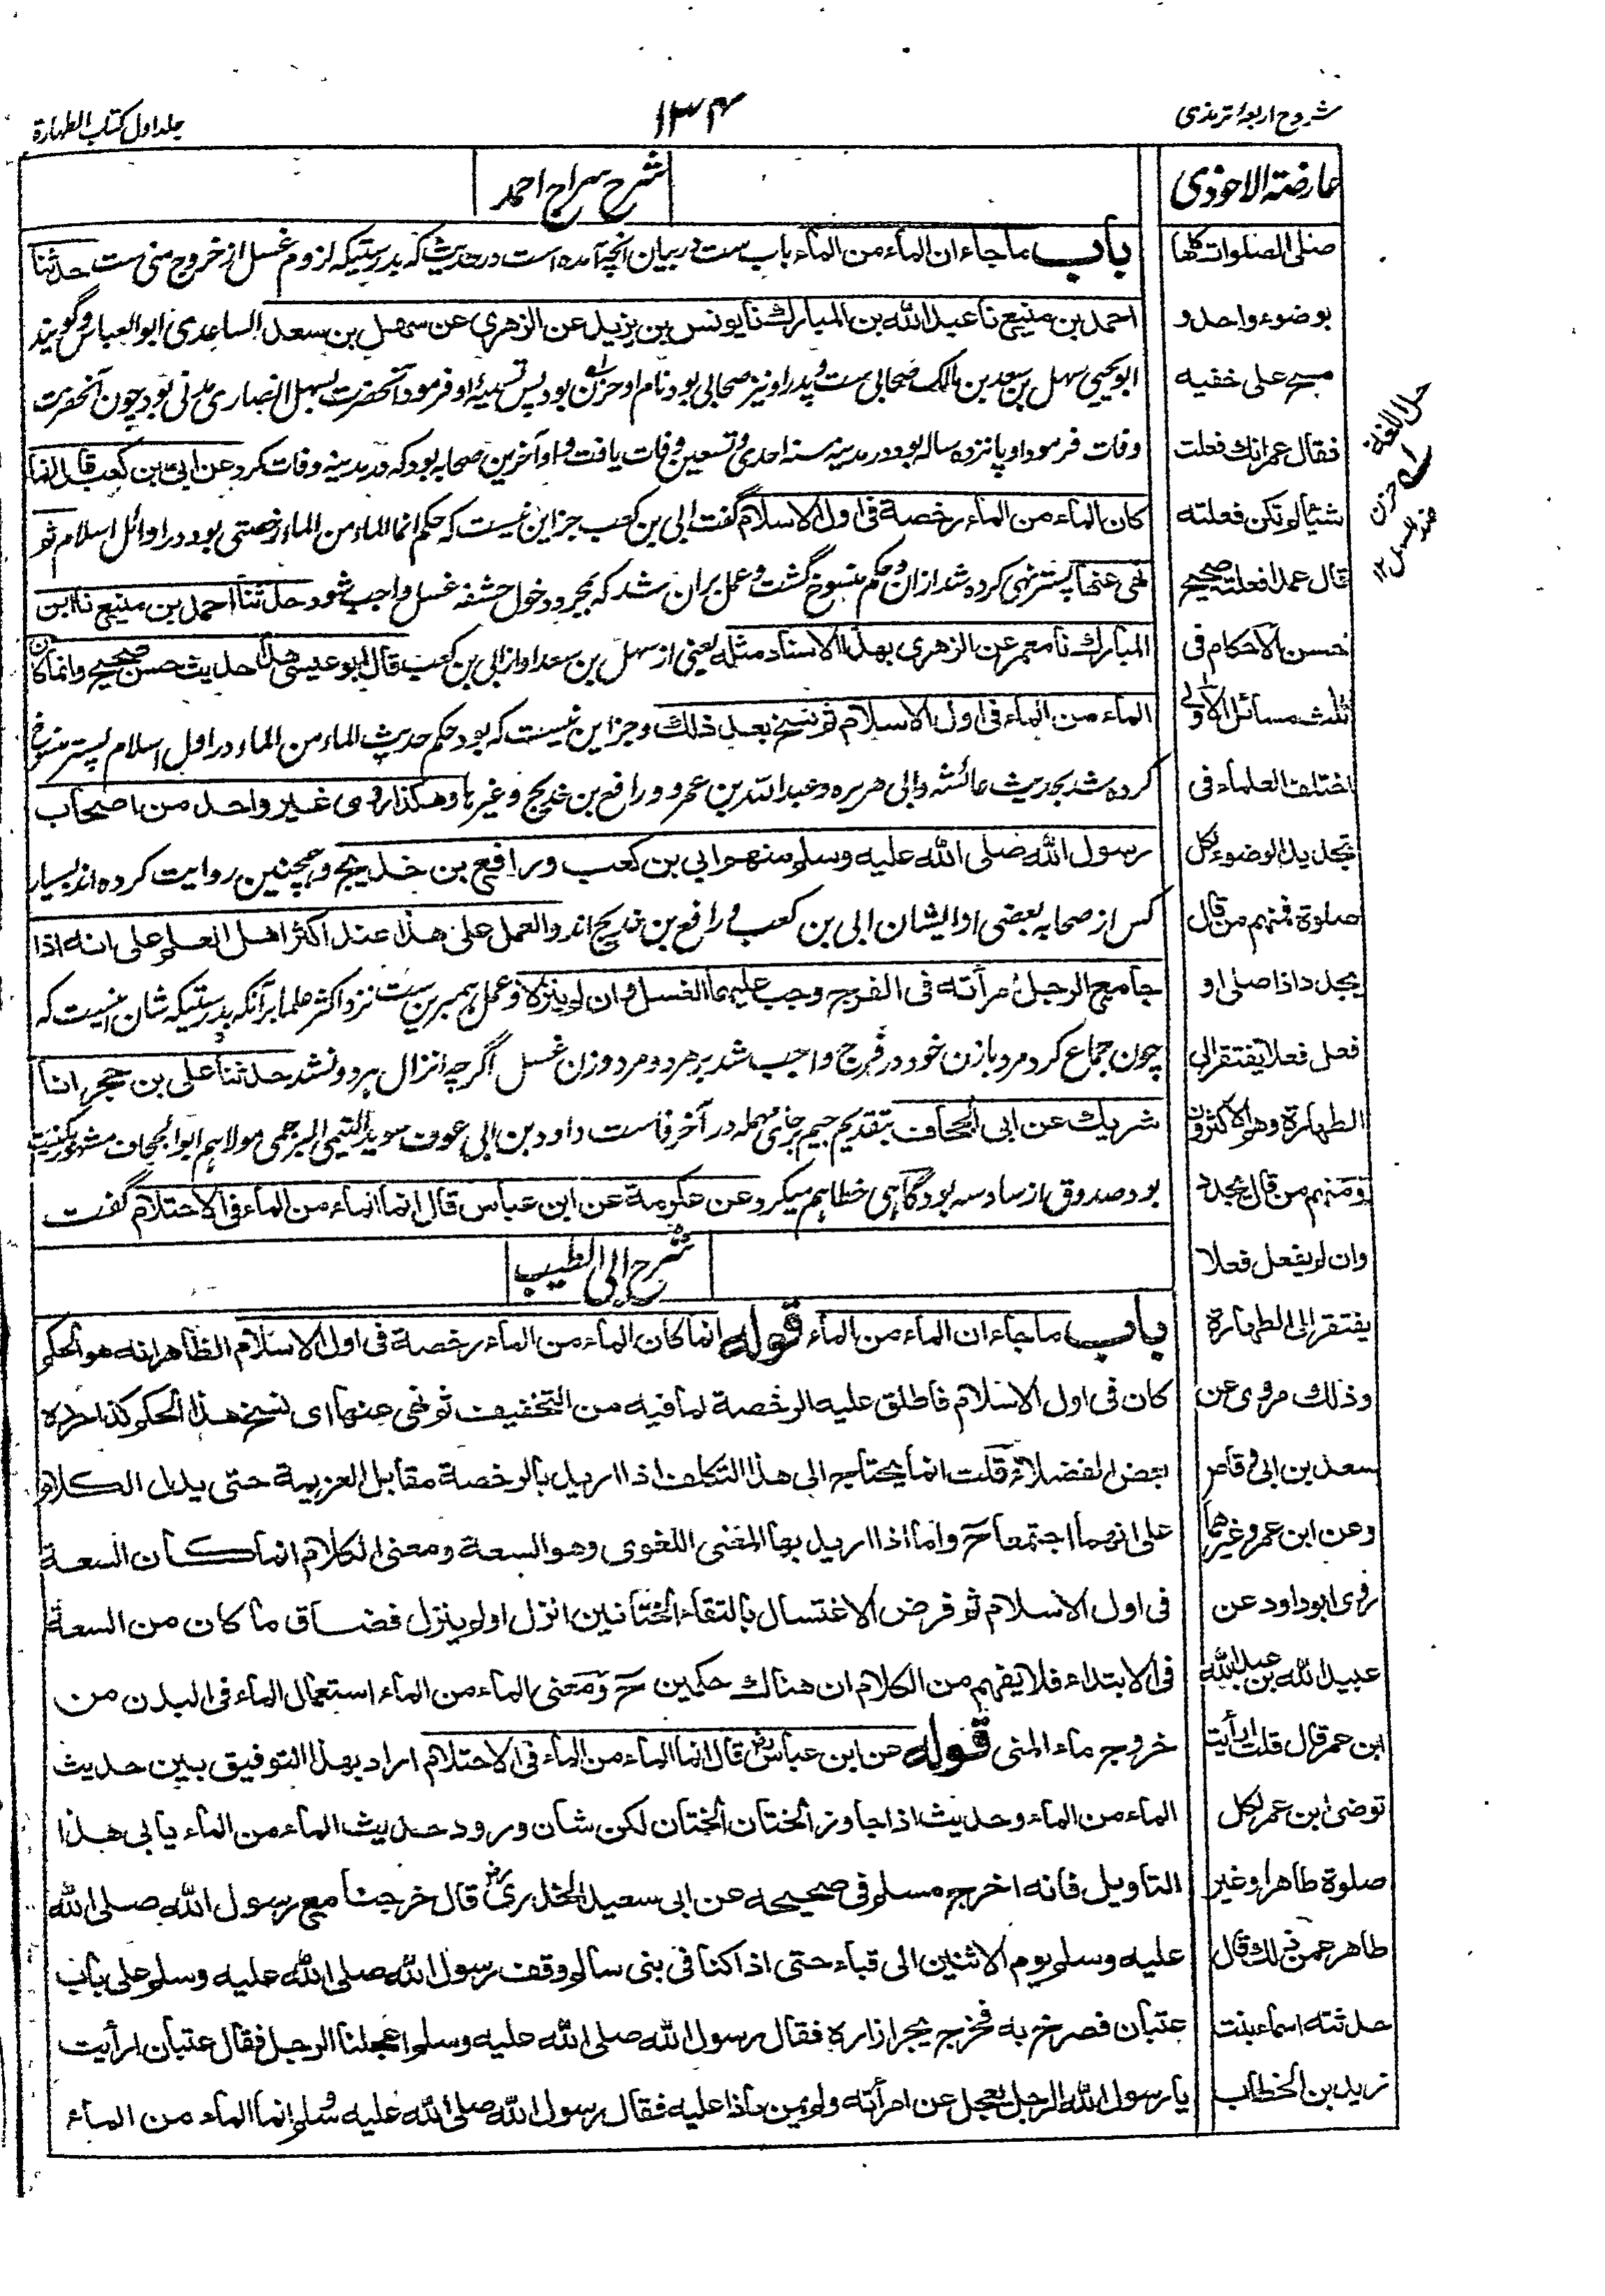 شروح اربعۂ ترمذی
۱۳۴
جلد اول کتاب الطهارة
عارضة الاحوذی
صلی الصلوات کلها
بوضوء واحد و
مسح علی خفیه
فقال عمر انك فعلت
شیئا لم تکن فعلته
قال عمدا فعلته صحیح
حسن الاحکام فی
ثلث مسائل الاولی
اختلف العلماء فی
تجدید الوضوء لکل
صلوة فمنهم من قال
یجدد اذا صلی او
فعل فعلا یفتقر الی
الطهارة وهو الاکثرون
ومنهم من قال یجدد
وان لم یفعل فعلا
یفتقر الی الطهارة
وذلك مروی عن
سعد بن ابی وقاص
وعن ابن عمر وغیرهما
روی ابو داود عن
عبید الله بن عبد الله
ابن عمر قال قلت ارأیت
توضی ابن عمر لکل
صلوة طاهرا وغیر
طاهر عمن ذلك قال
حدثته اسماء بنت
زید بن الخطاب
شرح سراج احمد
باب ما جاء ان الماء من الماء باب ست در بیان آنچه آمده است در حدیث که بدرستیکه لزوم غسل از خروج منی ست حدثنا
احمد بن منیع نا عبد الله بن المبارك نا یونس بن یزید عن الزهری عن سهل بن سعد الساعدی ابو العباس و گویند
ابو یحیی سهل بن سعد بن مالک صحابی ست و پدر او نیز صحابی بود نام او حزن بود پس تسمیهٔ او فرمود آنحضرت بسهل انصاری مدنی بود چون آنحضرت
وفات فرمود او پانزده ساله بود و در مدینه سنه احدی و تسعین وفات یافت و او آخرین صحابه بود که در مدینه وفات کرد عن ابی بن کعب قال انما
کان الماء من الماء رخصة فی اول الاسلام گفت ابی بن کعب جز این نیست که حکم انما الماء من الماء رخصتی بود در اوائل اسلام ثم
نهی عنها پستر نهی کرده شد از ان و حکم منسوخ گشت و عمل بران شد که بمجرد دخول حشفه غسل واجب شود حدثنا احمد بن منیع نا ابن
المبارك نا معمر عن الزهری بهذا الاسناد مثله یعنی از سهل بن سعد او از ابی بن کعب قال ابو عیسی هذا حدیث حسن صحیح وانما کان
الماء من الماء فی اول الاسلام ثم نسخ بعد ذلك و جز این نیست که بود حکم حدیث الماء من الماء در اول اسلام پستر منسوخ
کرده شد بحدیث عائشه و ابی هریره و عبد الله بن عمرو و رافع بن خدیج و غیرها وهکذا روی غیر واحد من اصحاب
رسول الله صلی الله علیه وسلم منهم ابی بن کعب و رافع بن خدیج و همچنین روایت کرده اند بسیار
کس از صحابه بعضی از ایشان ابی بن کعب و رافع بن خدیج اند والعمل علی هذا عند اکثر اهل العلم علی انه اذا
جامع الرجل امرأته فی الفرج وجب علیهما الغسل وان لم ینزلا و عمل بهمبرین ست نزد اکثر علما بر آنکه بدرستیکه شان اینست که
چون جماع کرد مرد با زن خود در فرج واجب شد بر هر دو مرد و زن غسل اگرچه انزال هر دو نشد حدثنا علی بن حجر انا
شریك عن ابی الجحاف بتقدیم جیم بر حای مهمله در آخر فا ست داود بن ابی عوف سوید التمیمی البرجمی مولاهم ابو الجحاف مشهور بکنیت
بود صدوق از سادسه بود گاهی خطا هم میکرد عن عکرمة عن ابن عباس قال انما الماء من الماء فی الاحتلام گفت
شرح ابی الطیب
باب ما جاء ان الماء من الماء قوله انما کان الماء من الماء رخصة فی اول الاسلام الظاهر انه هو الحکم
کان فی اول الاسلام فاطلق علیه الرخصة لما فیه من التخفیف ثم نهی عنها ای نسخ هذا الحکم کذا حرره
بعض الفضلاء قلت انما یحتاج الی هذا التکلف اذا ارید بالرخصة مقابل العزیمة حتی یدل الکلام
علی انهما اجتمعا ح واما اذا ارید بها المعنی اللغوی وهو السعة ومعنی الکلام انما کان السعة
فی اول الاسلام ثم فرض الاغتسال بالتقاء الختانین انزل او لم ینزل فضاق ما کان من السعة
فی الابتداء فلا یفهم من الکلام ان هناك حکمین ح ومعنی الماء من الماء استعمال الماء فی البدن من
خروج ماء المنی قوله عن ابن عباس رض قال انما الماء من الماء فی الاحتلام اراد بهذا التوفیق بین حدیث
الماء من الماء وحدیث اذا جاوز الختان الختان لکن شان ورود حدیث الماء من الماء یابی هذا
التاویل فانه اخرج مسلم فی صحیحه عن ابی سعید الخدری رض قال خرجنا مع رسول الله صلی الله
علیه وسلم یوم الاثنین الی قباء حتی اذا کنا فی بنی سالم وقف رسول الله صلی الله علیه وسلم علی باب
عتبان فصرخ به فخرج یجر ازاره فقال رسول الله صلی الله علیه وسلم اعجلنا الرجل فقال عتبان ارأیت
یا رسول الله الرجل یعجل عن امرأته ولم یمن ماذا علیه فقال رسول الله صلی الله علیه وسلم انما الماء من الماء
حل اللغة
حزن
ضد السهل ۱۲